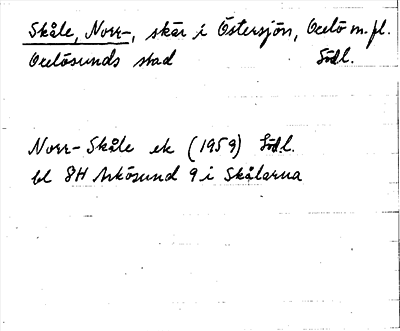 Skåle, Norr-, skär i Östersjön, Oxelö m.fl.
Oxelösunds stad Södl.
Norr-Skåle ek (1959) Södl.
bl 8H Arkösund 9 i Skålarna